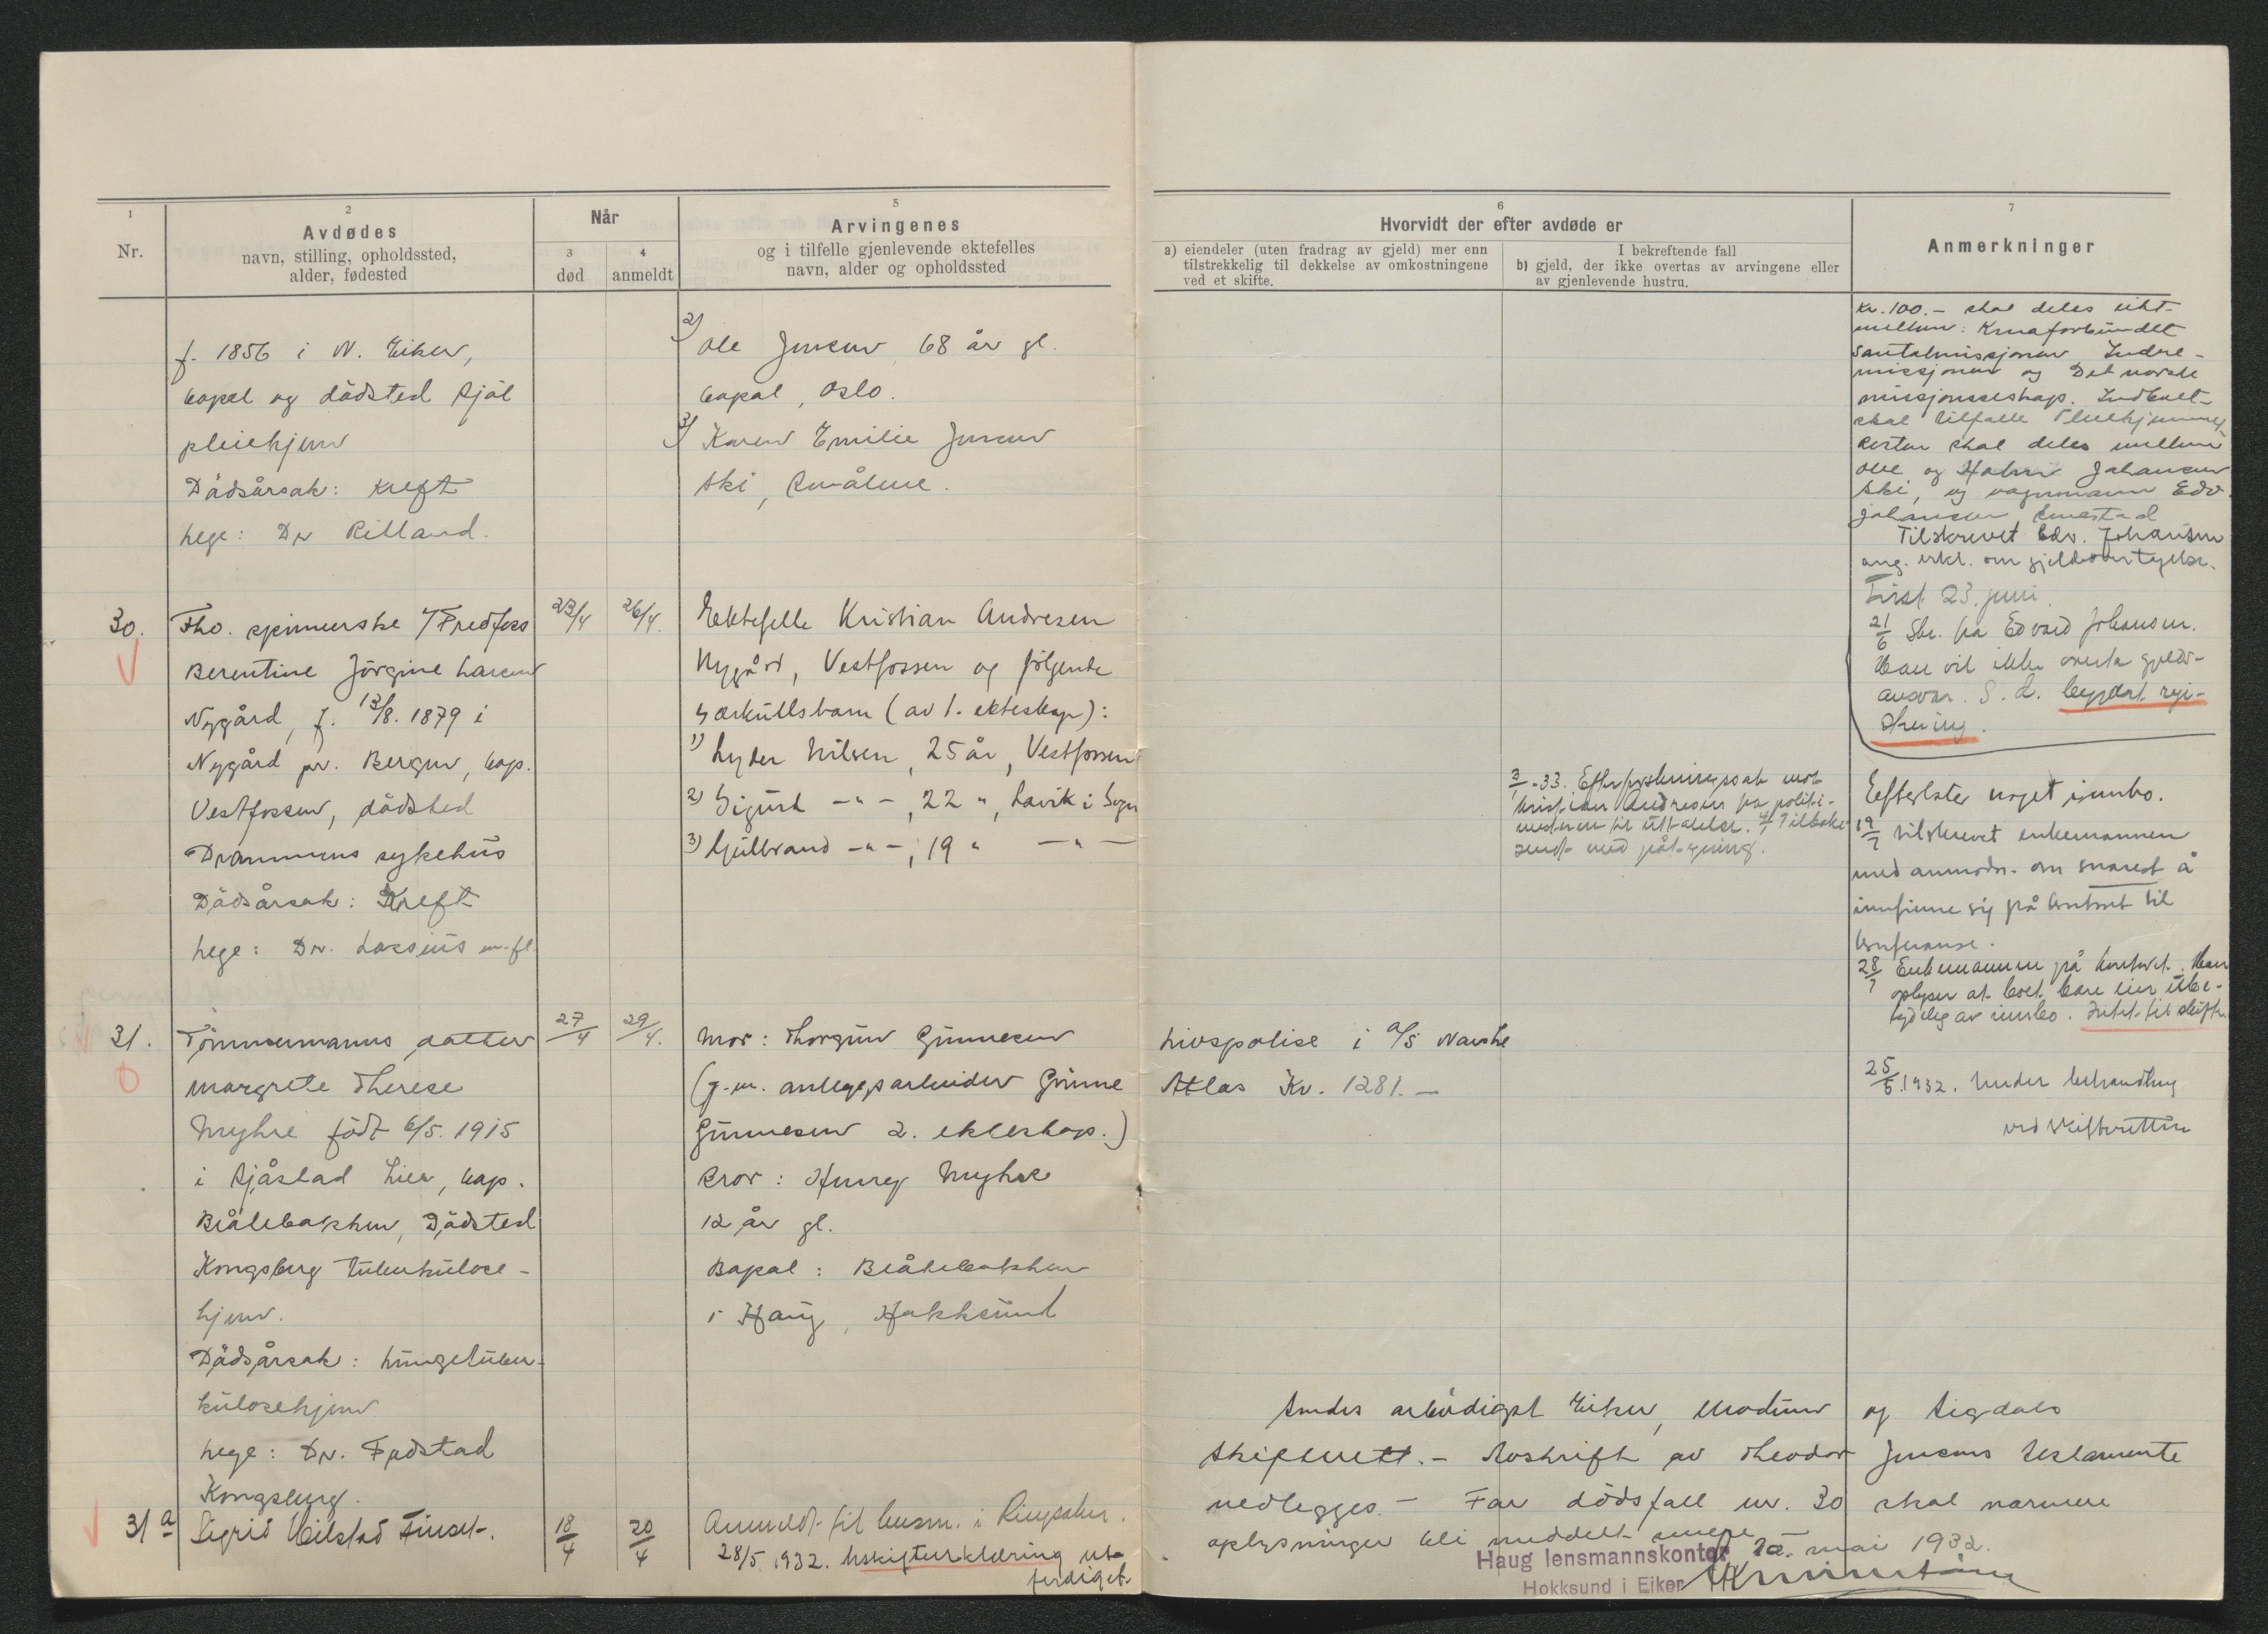 1
Nr.
2
Avdødes
navn, stilling, opholdssted,
alder, fødested
Når
3
død
4
anmeldt
5
Arvingenes
og i tilfelle gjenlevende ektefelles
navn, alder og opholdssted
f. 1856 i N. Eiker,
bopel og dödsted
pleiehjem
Dödsårsak: Kreft
Lege: Dr
2)
Ole Jensen 68 år gl.
bopæl, Oslo.
3)
Karen Emilie Jensen
Ski,
30.
Fhv. spinnerske v/Fredfoss
Berentine Jörgine Larsen
Nygård, f. 13/8. 1879 i
Nygård pr. Bergen, bop.
Vestfossen, dödsted
Drammens sykehus
Dödsårsak: Kreft
Lege: Dr. Lassens m. fl.
23/4
26/4.
Ektefelle Kristian Andresen
Nygård, Vestfossen og følgende
særkullsbarn (av 1. ekteskap):
1) Lyder Nilsen, 25 år, Vestfossen
2) Sigurd -"-, 22 ", Lavik i Sogn
3) Gulbrand -"-, 19 " -"-
31.
Tömmermanns datter
Margrete Therese
Myhre födt 6/5. 1915
i Sjåstad Lier, bop.
Blålebakken, Dödsted
Kongsberg tuberkulose-
hjem.
Dödsårsak: Lungetuber-
kulosehjem
Lege: Dr. Fodstad
Kongsberg.
27/4
29/4.
Mor: Thorgun Gunnesen
(g.m. anleggsarbeider Gunne
Gunnesen 2. ekteskap.)
Bror: Henry Myhre
12 år gl.
Bopæl: Blålebakken
i Haug, Hokksund
31 a
Sigrid Hilstad Finset.
18/4
20/4
Anmeldt til lensm. i Ringsaker.
28/5 1932. Uskifteerklæring ut-
ferdiget
6
Hvorvidt der efter avdøde er
a) eiendeler (uten fradrag av gjeld) mer enn
tilstrekkelig til dekkelse av omkostningene
ved et skifte.
I bekreftende fall
b) gjeld, der ikke overtas av arvingene eller
av gjenlevende hustru.
7
Anmerkninger
Kr. 100.- skal deles likt
mellem:
Santalmisjonen, Indre-
misjonen og Det norske
misjonsselskap. Indboet
skal tilfalle Pleiehjemmet
Resten skal deles mellem
Ole og Håkon Johansen
Ski, og vognmann Edv.
Johansen
Tilskrevet Edv. Johansen
ang. erkl. om gjeldsovertagelse.
Frist 23. juni.
21/6 Skr. fra Edvard Johansen.
Han vil ikke overta gjelds-
ansvar. S. d. begjært regi-
strering.
3/1-33. Efterforskningssak mot
Kristian Andresen fra politi-
mesteren til uttalelse. 4/1 Tilbake-
sendt med påtegning.
Efterlater noget innbo.
19/7 tilskrevet enkemannen
med anmodn. om snarest å
innfinne sig på kontoret til
konferanse.
28/7 Enkemannen på kontoret. Han
oplyser at boet bare eier ube-
tydelig av innbo. Intet til skifte.
Livspolise i A/S Norske
Atlas Kr. 1281.-
25/5.1932. Under behandling
ved skifteretten
Sendes ærbödigst Eiker, Modum og Sigdals
skifterett. - Avskrift av Theodor Jensens testamente
vedlegges. - For dödsfall nr. 30 skal nærmere
oplysninger bli meddelt senere
mai 1932.
Haug lensmannskontor
Hokksund i Eiker